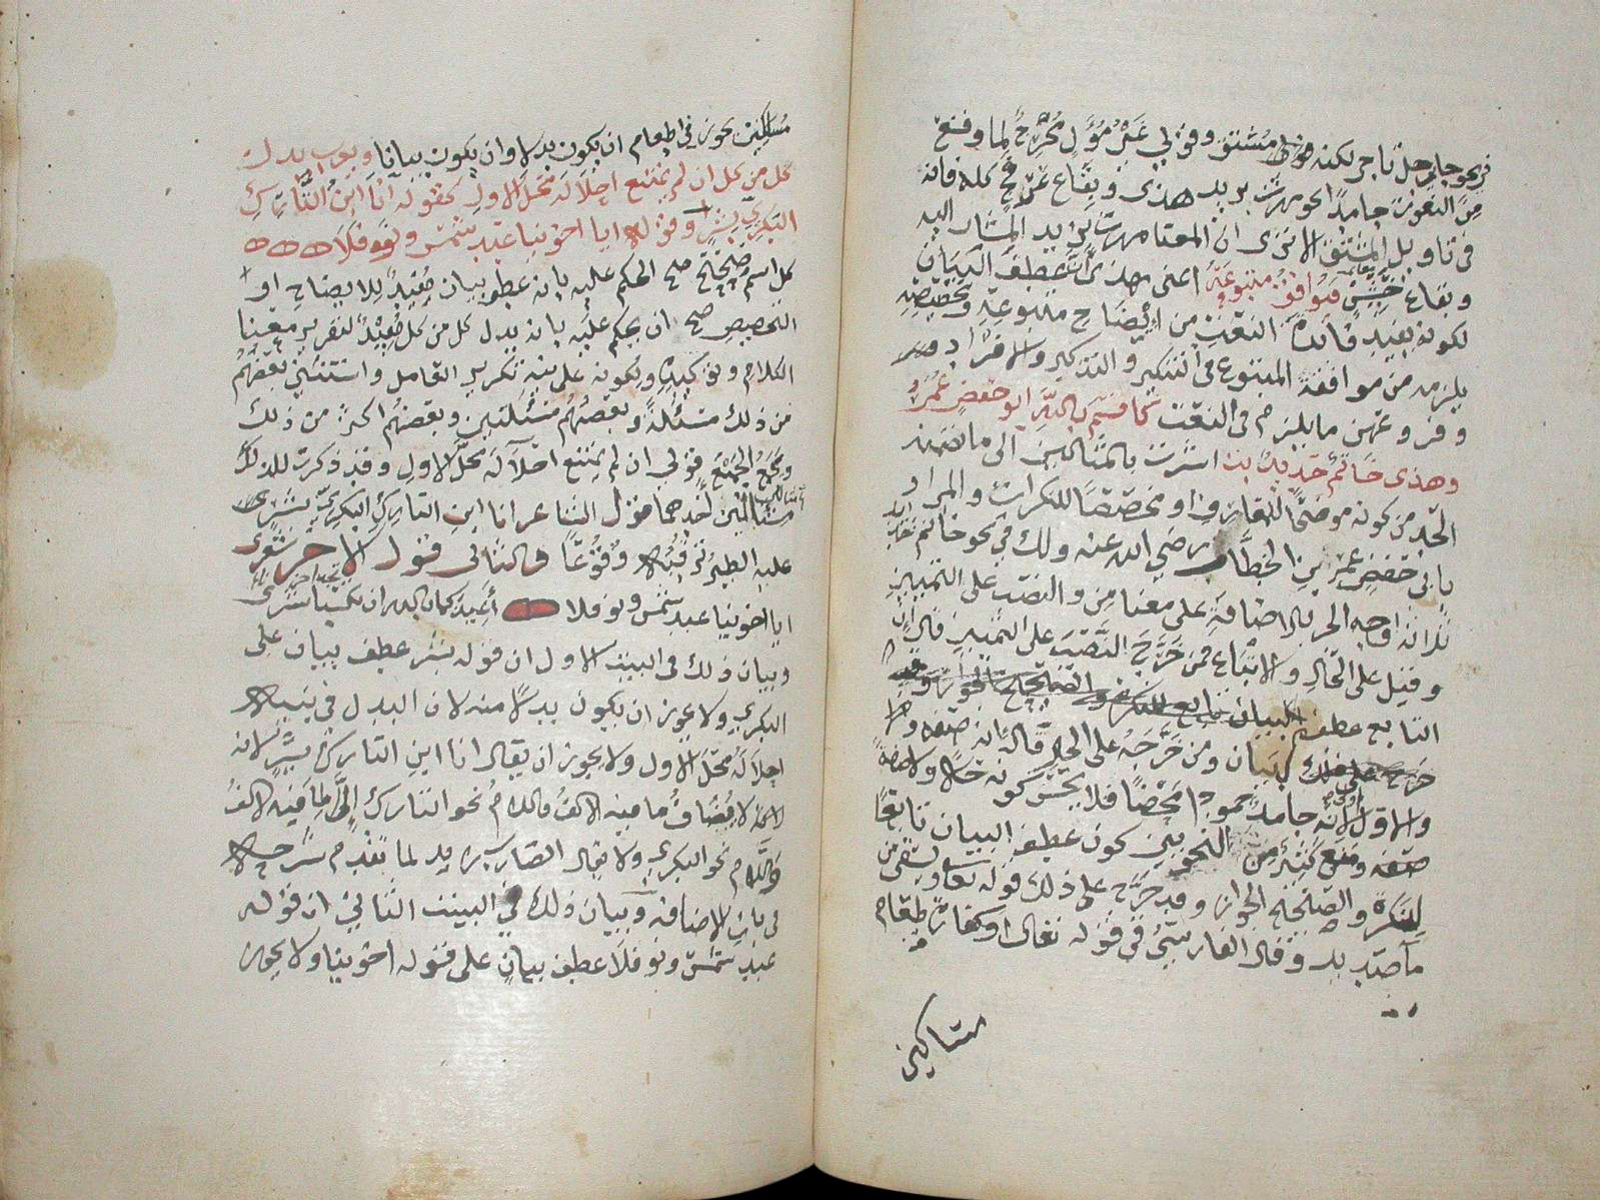 في نحو جاء رجل تاجر لكنه مشتق وقولي غير مؤول مخرج لما وقع
من النعوت جامدا نحو مررت بزيد هذا وبقاع عرفج كله فانه
في تاويل المشتق الا ترى ان المعنا مررت بزيد المشار اليه
وبقاع خشن فيوافق متبوعه اعنى بهذا ان عطف البيان
لكونه يفيد فائدة النعت من ايضاح متبوعه وتخصيصه
يلزمه من موافقة المتبوع في التنكير والتذكير والافراد
وفروعهن ما يلزم في النعت كاقسم بالله ابو حفص عمر
وهذا خاتم حديد اشرت بالمثالين الى ما تضمنه
الحد من كونه موضحا للمعارف او مخصصا للنكرات والمراد
بابي حفص عمر بن الخطاب رضي الله عنه ولك في نحو خاتم حديد
ثلاثة اوجه الجر بالاضافة على معنا من والنصب على التمييز
وقيل على الحال والاتباع فمن خرج النصب على التمييز قال ان
التابع عطف البيان
بيان ومن خرجه على الحال قال انه صفة
والاول اولى لانه جامد جمودا محضا فلا يحسن كونه حالا ولا صفة
ومنع كثير من النحويين كون عطف البيان تابعا
للنكرة والصحيح الجواز وقد خرج على ذلك قوله تعالى ويسقى من
ماء صديد وقال الفارسي في قوله تعالى او كفارة طعام
مساكين
مساكين يجوز في طعام ان يكون بدلا وان يكون بيانا ويعرب بدل
كل من كل ان لم يمتنع احلاله محل الاول كقوله انا ابن التارك
البكري بشر وقوله ايا اخوينا عبد شمس ونوفلا
كل اسم صح الحكم عليه بانه عطف بيان مفيد للايضاح او
التخصيص صح ان يحكم عليه بانه بدل كل من كل مفيد لتقرير معنا
الكلام وتوكيده ولكونه على نية تكرير العامل واستثنى بعضهم
من ذلك مسئلة وبعضهم مسئلتين وبعضهم اكثر من ذلك
ويجمع الجميع قولي ان لم يمتنع احلاله محل الاول وقد ذكرت لذلك
مثالين احدهما قول الشاعر انا ابن التارك البكري بشر
عليه الطير ترقبه وقوعا والثاني قول الاخر
ايا اخوينا عبد شمس ونوفلا اعيذكما بالله ان تحدثا حربا
وبيان ذلك في البيت الاول ان قوله بشر عطف بيان على
البكري ولا يجوز ان يكون بدلا منه لان البدل في نية
احلاله محل الاول ولا يجوز ان يقال انا ابن التارك بشر لانه
لا يضاف ما فيه الالف واللام نحو التارك الا لما فيه الالف
واللام نحو البكري ولا يقال الضارب زيد لما تقدم شرحه
في باب الاضافة وبيان ذلك في البيت الثاني ان قوله
عبد شمس ونوفلا عطف بيان على قوله اخوينا ولا يجوز